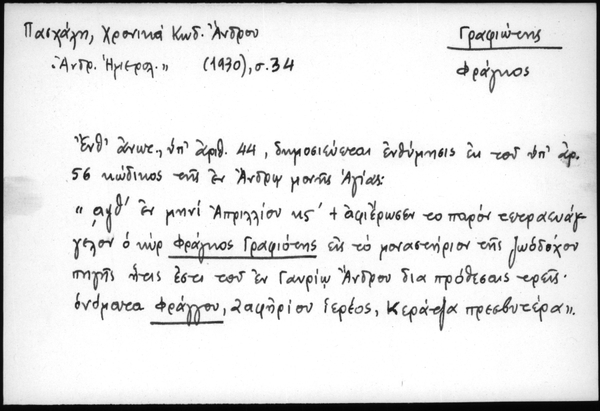 Πασχάλη, Χρονικά Κωδ. Ἄνδρου
Γραφιώτης
«Ἀνδρ. Ἡμερολ.» (1930), σ. 34
Φράγκος
Ἔνθ' ἄνωτ., ὑπ' ἀριθ. 44, δημοσιεύεται ἐνθύμησις ἐκ τοῦ ὑπ' ἀρ.
56 κώδικος τῆς ἐν Ἄνδρῳ μονῆς Ἁγίας:
«͵αχθ' ἐν μηνί Απριλλίου κς' + ἀφιέρωσεν το παρόν τετραευάγ
γελον ὁ κὺρ Φράγκος Γραφιότης εἰς τὸ μοναστήριον τῆς ζωόδοχον
πηγῆς ἥτις ἔστι τοῦ ἐν Γαυρίῳ Ἄνδρου δια πρόθεσαις τρεῖς·
ὀνόματα Φράγγου, Ζαφηρίου ἱερέος, Κεράτζα πρεσβυτέρα».